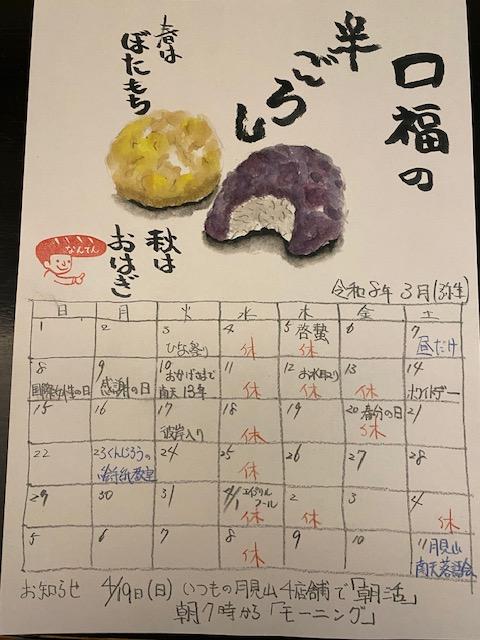 口福の
半ごろし
春は
ぼたもち
秋は
おはぎ
なんてん
令和8年 3月(弥生)
日 月 火 水 木 金 土
1 2 3 ひな祭り 4 休 5 啓蟄 休 6 7 昼だけ
8 国際女性の日 9 感謝の日 10 おかげさまで南天13年 11 休 12 お水取り 休 13 休 14 ホワイトデー
15 16 17 彼岸入り 18 休 19 20 春分の日 休 21
22 23 くんじろうの絵手紙教室 24 25 休 26 27 28
29 30 31 4/1 エイプリルフール 休 2 休 3 4 休
5 6 7 8 休 9 10 11 月見山南天落語会
お知らせ 4/19日(日) いつもの月見山 4店舗で「朝活」
朝7時から「モーニング」